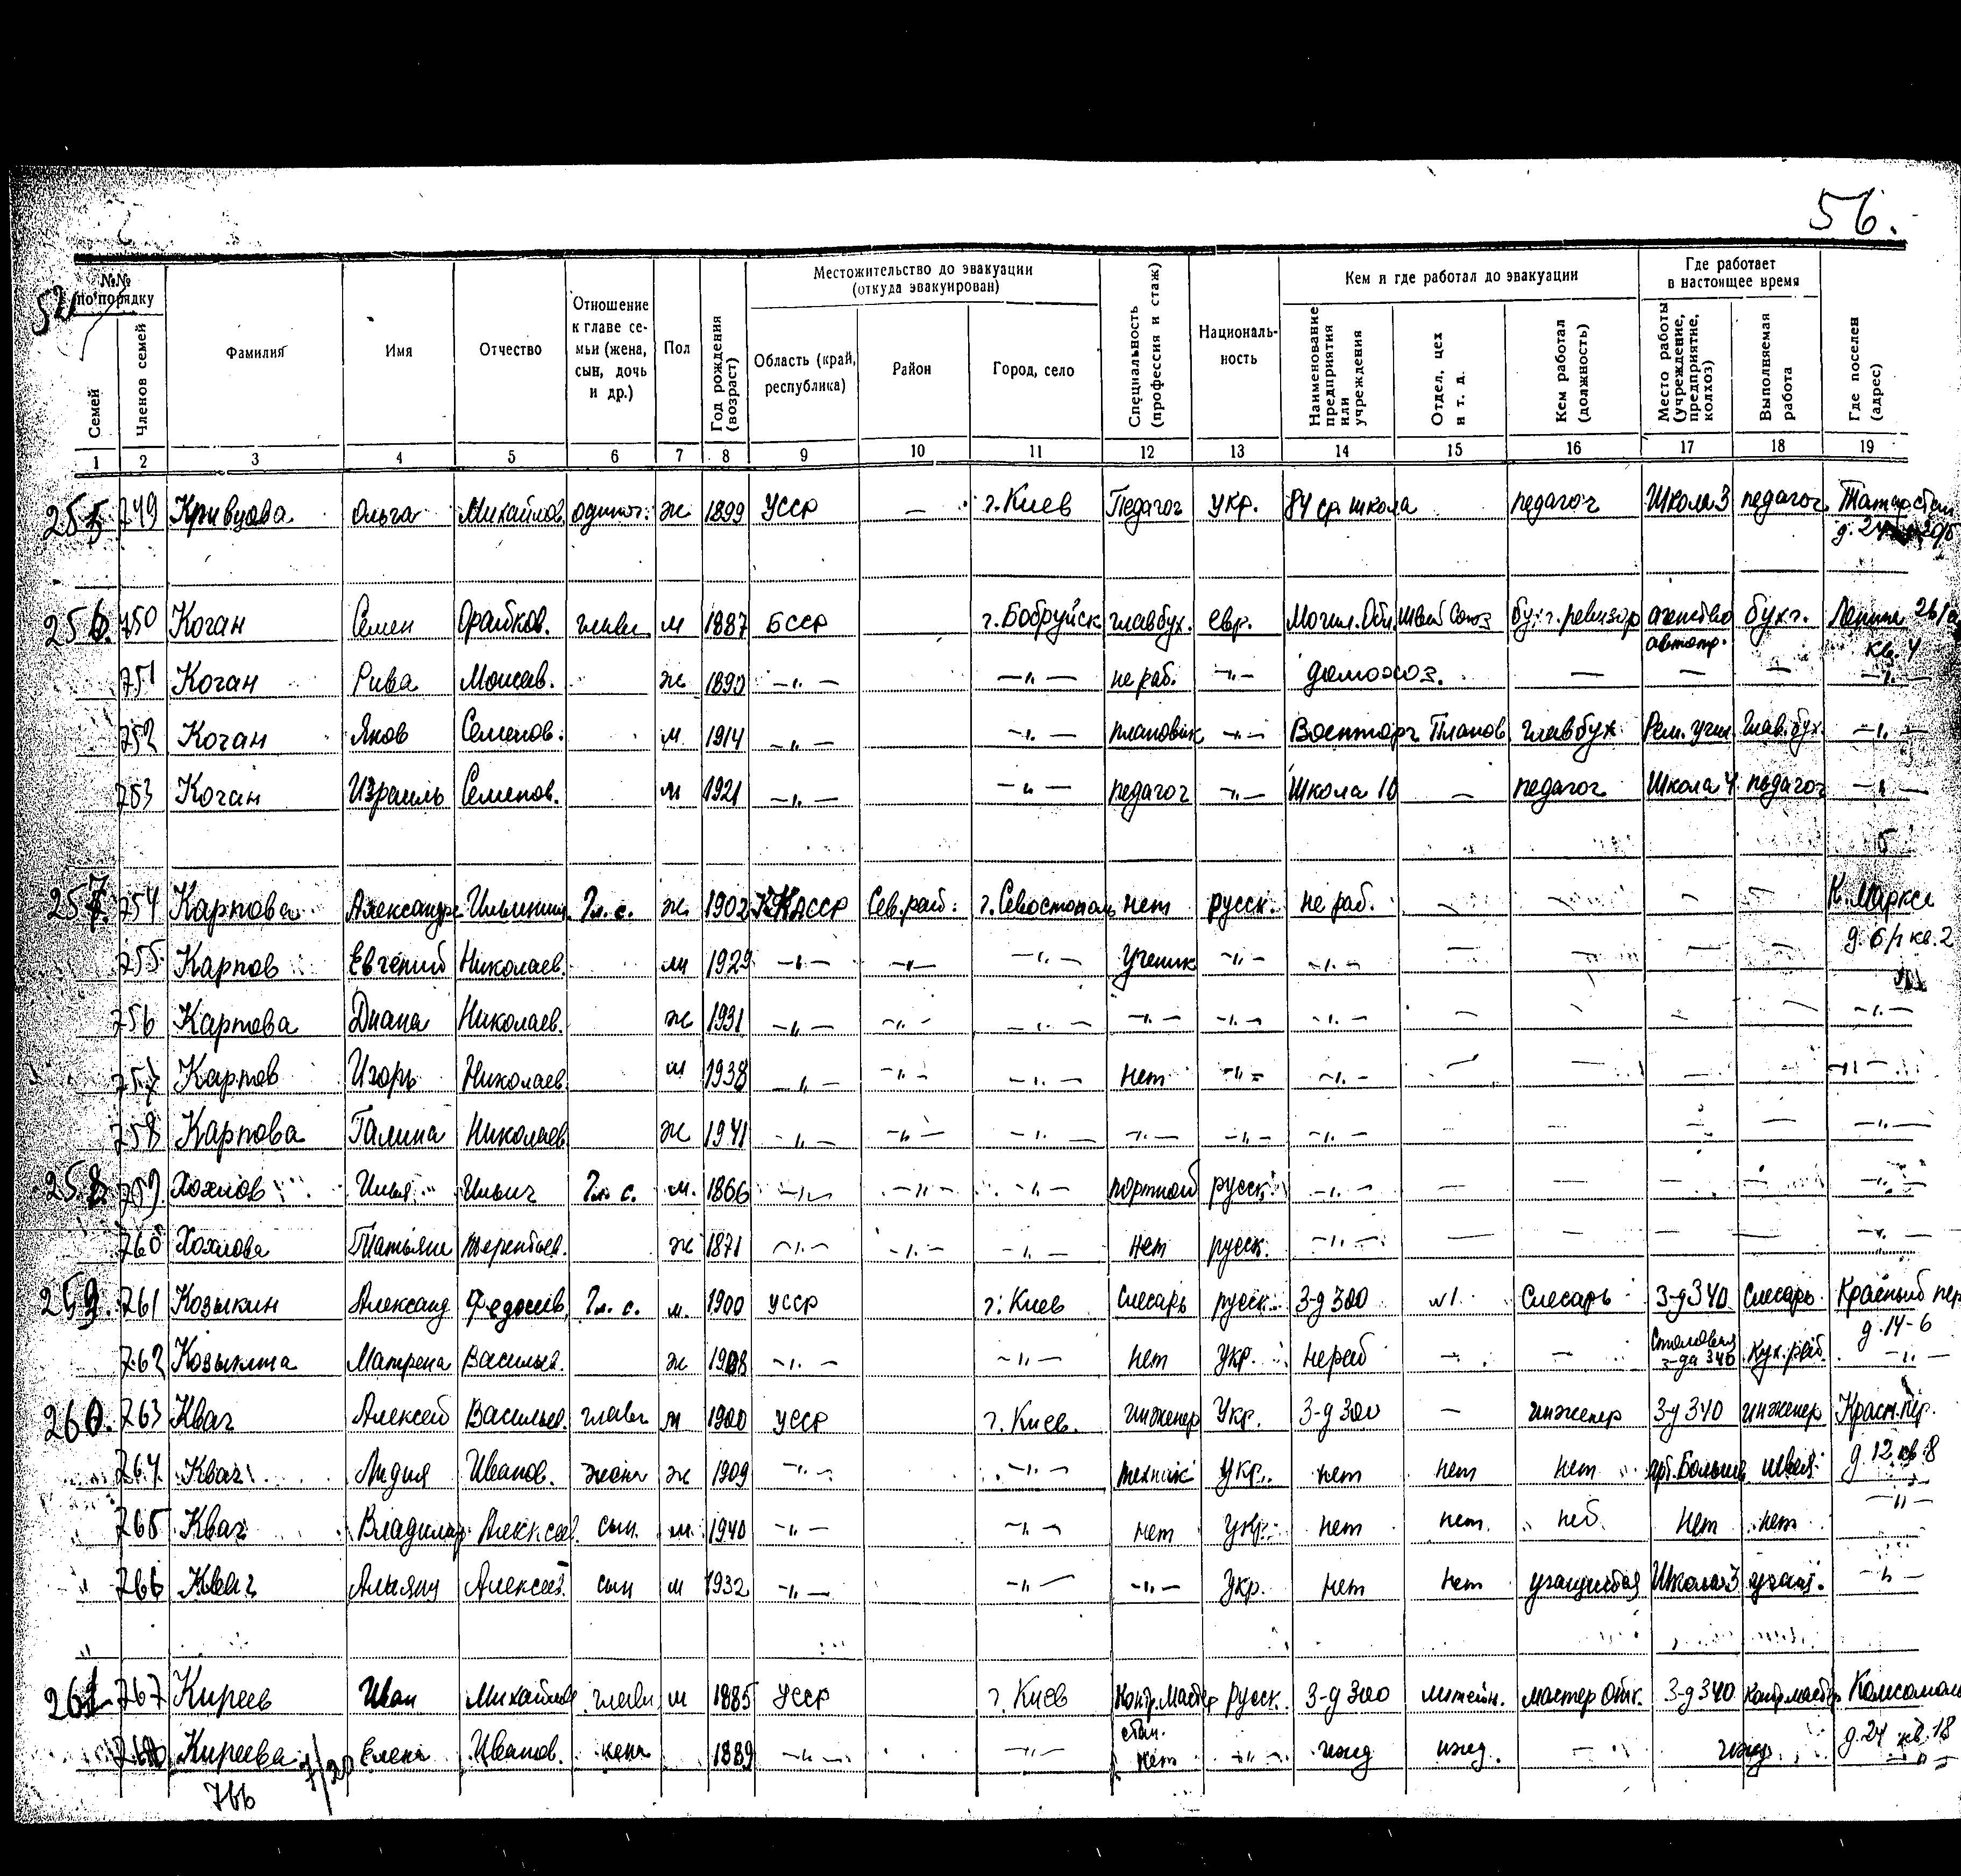 56.
52
№№ по порядку
Семей
Членов семей
Фамилия
Имя
Отчество
Отношение к главе се-мьи (жена, сын, дочь и др.)
Пол
Год рождения (возраст)
Местожительство до эвакуации (откуда эвакуирован)
Область (край, республика)
Район
Город, село
Специальность (профессия и стаж)
Националь-ность
Кем и где работал до эвакуации
Наименование предприятия или учреждения
Отдел, цех и т. д.
Кем работал (должность)
Где работает в настоящее время
Место работы (учреждение, предприятие, колхоз)
Выполняемая работа
Где поселен (адрес)
1 2 3 4 5 6 7 8 9 10 11 12 13 14 15 16 17 18 19
255 749 Кривцова Ольга Михайлов. одинок. ж 1899 УССР — г. Киев Педагог укр. 84 ср. школа педагог Школа 3 педагог
256. 750 Коган Семен глав м 1887 БССР г. Бобруйск главбух. евр. Могил. Обл. Швей Союз бухг. ревизор агенство автотр. бухг. Ленина 26/а кв. 4
751 Коган Рива Моисев. ж 1890 —„— —„— не раб. —„— домохоз. — — — —„—
752 Коган Яков Семенов. м 1914 —„— —„— плановик —„— Военторг Планов. главбух Рем. учил глав. бух. —„—
753 Коган Израиль Семенов. м 1921 —„— —„— педагог —„— Школа 10 — педагог Школа 4 педагог —„—
257. 754 Карпова Александра Ильинич. Гл. с. ж 1902 ККАССР Сев. рай. г. Севостополь нет русск. не раб. — — — — К. Маркса
755 Карпов Евгений Николаев. м 1929 —„— —„— —„— ученик —„— —„— — — — — д. 6/1 кв. 2
756 Карпова Диана Николаев. ж 1931 —„— —„— —„— —„— —„— —„— — — — — —„—
757 Карпов Игорь Николаев. м 1938 —„— —„— —„— нет —„— —„— — — — — —„—
758 Карпова Галина Николаев. ж 1941 —„— —„— —„— —„— —„— —„— — — — — —„—
258. 759. Хохлов Илья Ильич Гл. с. м. 1866 —„— —„— —„— портной русск. —„— — — — — —„—
760 Хохлова Татьяна Терентьев. ж 1871 —„— —„— —„— нет русск. —„— — — — — —„—
259. 761 Козыкин Александ Федосеев. Гл. с. м. 1900 УССР г. Киев Слесарь русск. 3-д 300 Слесарь 3-д 340 Слесарь Красный пер. д. 14-6
762 Козыкина Матрена Васильев. ж 1908 —„— —„— нет Укр. не раб — — Столовая з-да 340 Кух. раб. —„—
260. 763 Квач Алексей Васильев. глава м 1900 УССР г. Киев. инженер Укр. 3-д 300 — инженер 3-д 340 инженер Красн. пер. д. 12 кв. 8
764 Квач Лидия Иванов. жена ж 1909 —„— —„— техник укр. нет нет нет арт. Больш. швея —„—
765 Квач Владимир Алексеев. сын м. 1940 —„— —„— нет укр. нет нет нет нет
766 Квач Алексеев. сын м 1932 —„— —„— —„— укр. нет нет учащийся Школа 3 учащ. —„—
261 767 Киреев Иван Михайлов глава м 1885 УССР г. Киев Контр. Мастер русск. 3-д 300 литейн. мастер Отк. 3-д 340 Контр. мастер Комсомол. д. 24 кв. 18
Киреева Елена Иванов. жена 1889 —„— —„— нет —„— ижд ижд. — ижд. —„—
766 7/20